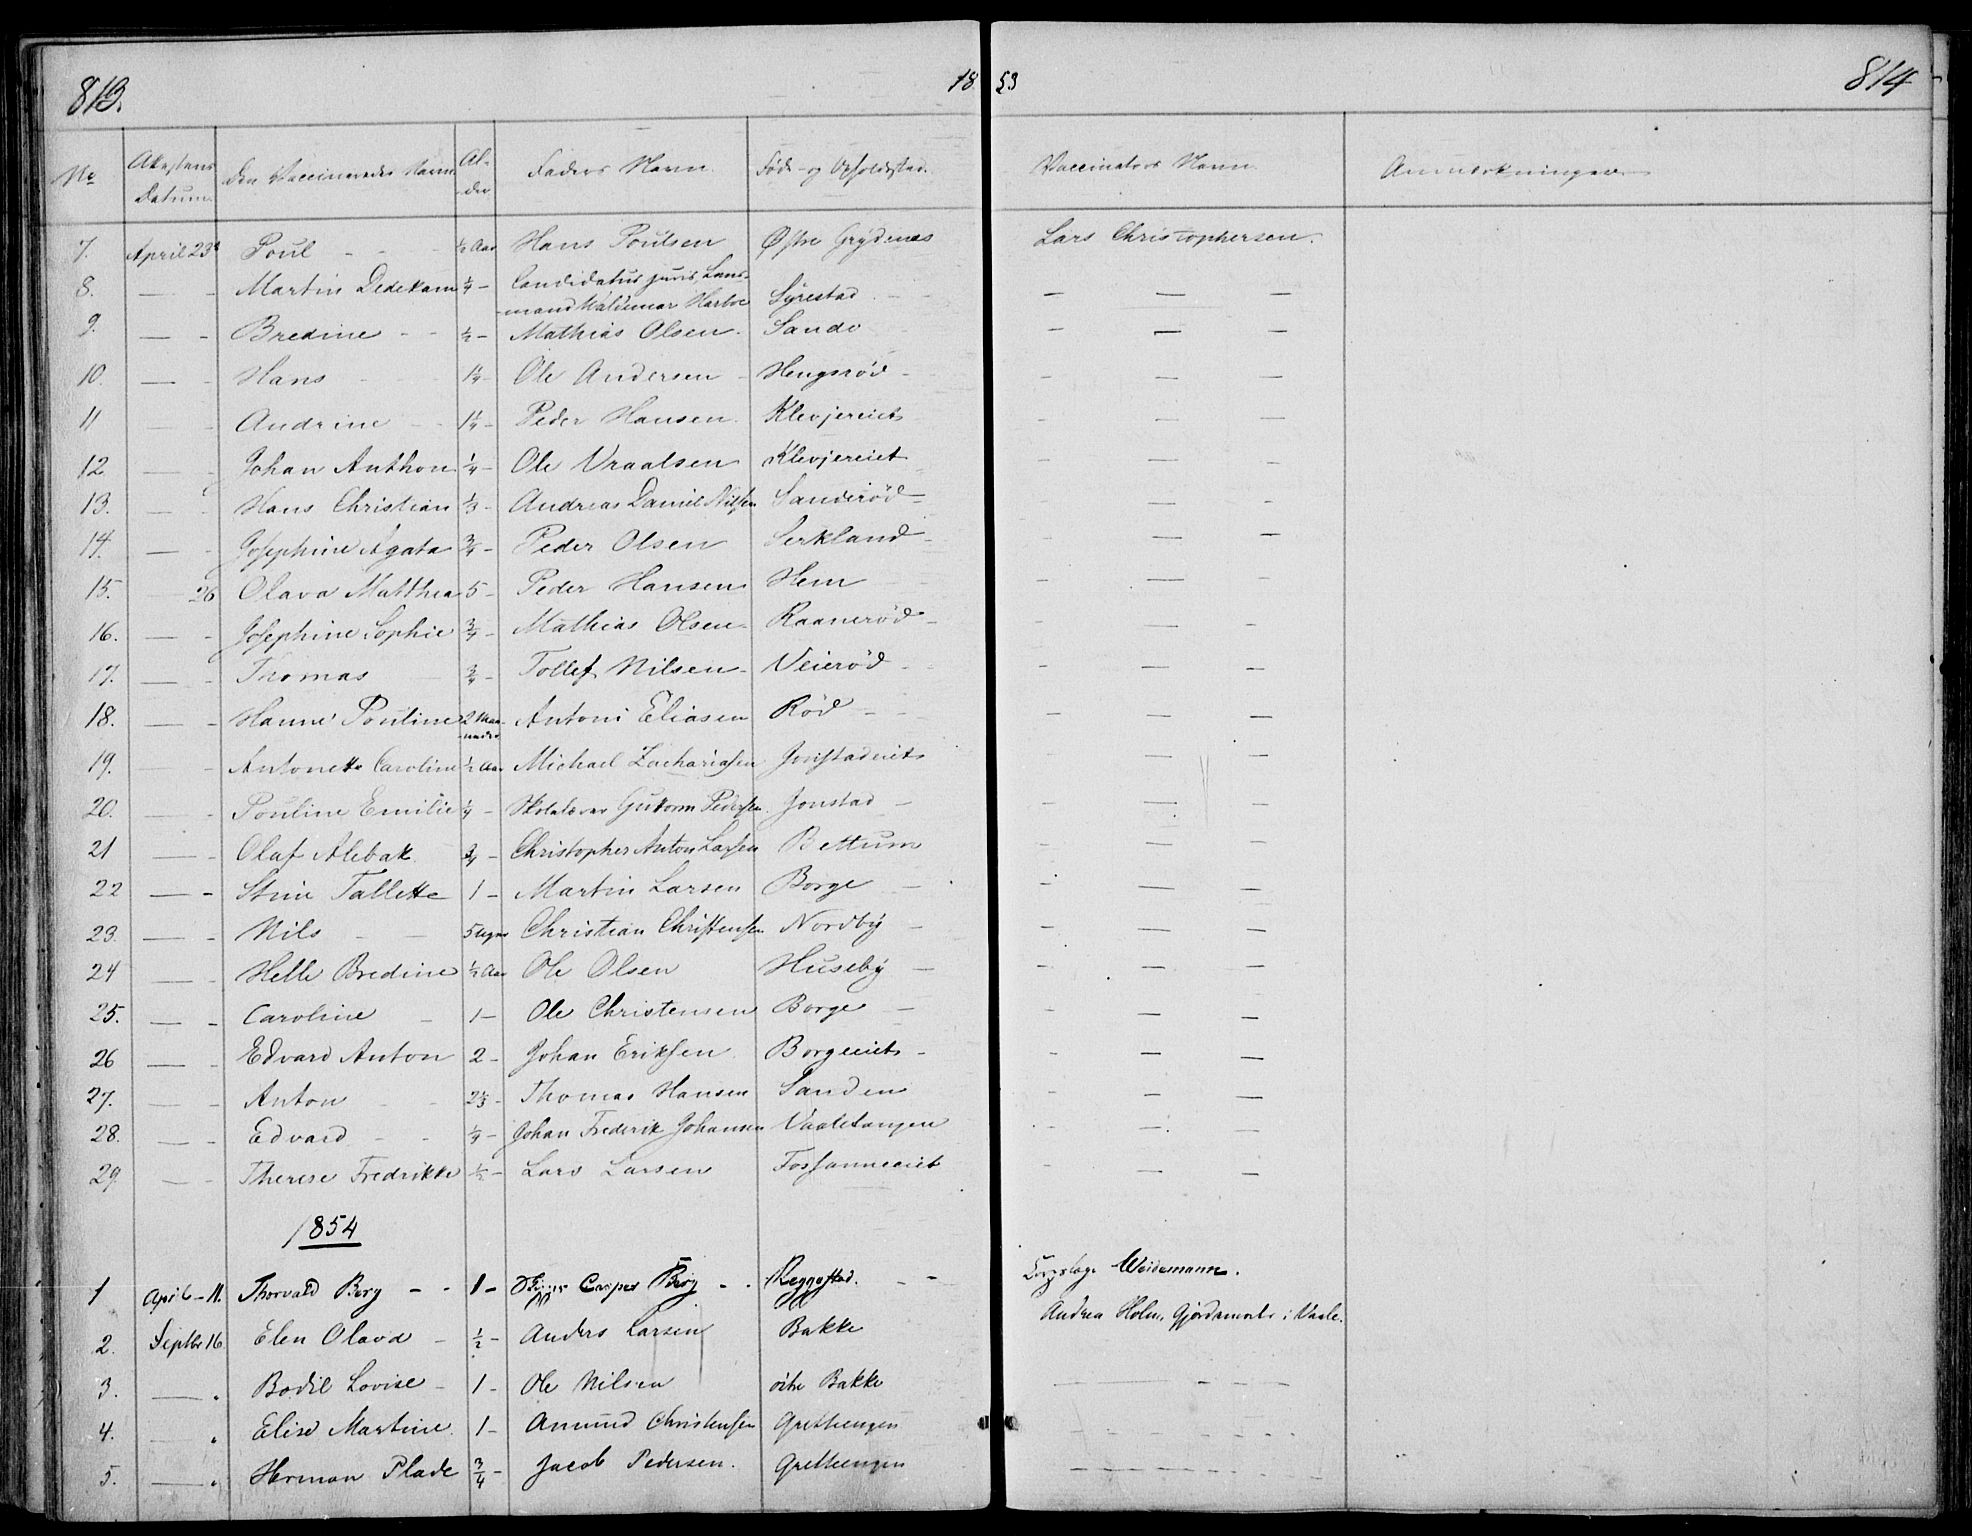 813.
1853
814
No
Attestens Datum.
Den Vaccineredes Navn
Alder
Faders Navn.
Føde- og Opholdssted.
Vaccinators Navn.
Anmærkninger
7. April 23de Poul - - ½ Aar Hans Poulsen Østre Grydenæs Lars Christophersen.
8. — - Martin Dedekam ¼ - Candidatus juris, Lens-
mand Waldemar Harboe Syrestad - — — —
9. — - Bredine - - ½ - Mathias Olsen. Sande — — —
10. — - Hans - - 1¼ - Ole Andersen - Hengsrød - — — —
11 — - Andrine - - 1¼ - Peder Hansen. Klevjereiet — — —
12 — - Johan Anthon ¼ - Ole Vraalsen Klevjereiet — — —
13. — - Hans Christian ⅓ - Andreas Daniel Nilsen Sanderød - — — —
14. — - Josephine Agata ¾ - Peder Olsen Serkland - — — —
15. — 26 Olava Matthea 5 - Peder Hansen Hem — — —
16. — - Josephine Sophie ¾ - Mathias Olsen - Raanerød - — — —
17. — - Thomas ¾ - Tollef Nilsen - Veierød - — — —
18. — - Hanne Pouline 2 Maa-
neder Antoni Eliasen Rød - - — — —
19. — - Antonette Caroline ½ Aar Michael Zachariasen Jonstadeiet — — —
20. — - Pouline Emilie ¼ - Skolelærer Gutorm Pedersen Jonstad - — — —
21 — - Olaf Alebak ¾ - Christopher Anton Larsen Bettum — — —
22 — - Stine Tallette 1 - Martin Larsen Borge - — — —
23. — - Nils - - 5 Uger Christian Christensen Nordby - — — —
24 — - Helle Bredine ½ Aar Ole Olsen Huseby - — — —
25. — - Caroline - 1 - Ole Christensen Borge - — — —
26 — - Edvard Anton 2 - Johan Eriksen Borgeeiet - — — —
27. — - Anton - - 2⅔ - Thomas Hansen Sanden — — —
28. — - Edvard - - ¼ - Johan Frederik Johansen Vaaletangen — — —
29. — - Therese Fredrikke ½ - Lars Larsen Fossaneeiet — — —
1854
1 April - 11. Thorvald Berg - - 1 - Casper Berg - . Reggestad. - - Weidemann.
2. Septbr 16 Elen Olava - ½ - Anders Larsen Bakke Andrea Holm, Gjordemoder i Vaale.
3. — „ Bodil Lovise - 1 - Ole Nilsen østre Bakke — - — —
4. — „ Elise Martine. 1 - Amund Christensen Gretteengen - - - - - - -
5. — „ Herman Plade ¾ - Jacob Pedersen. Gretteengen - - - - - - -